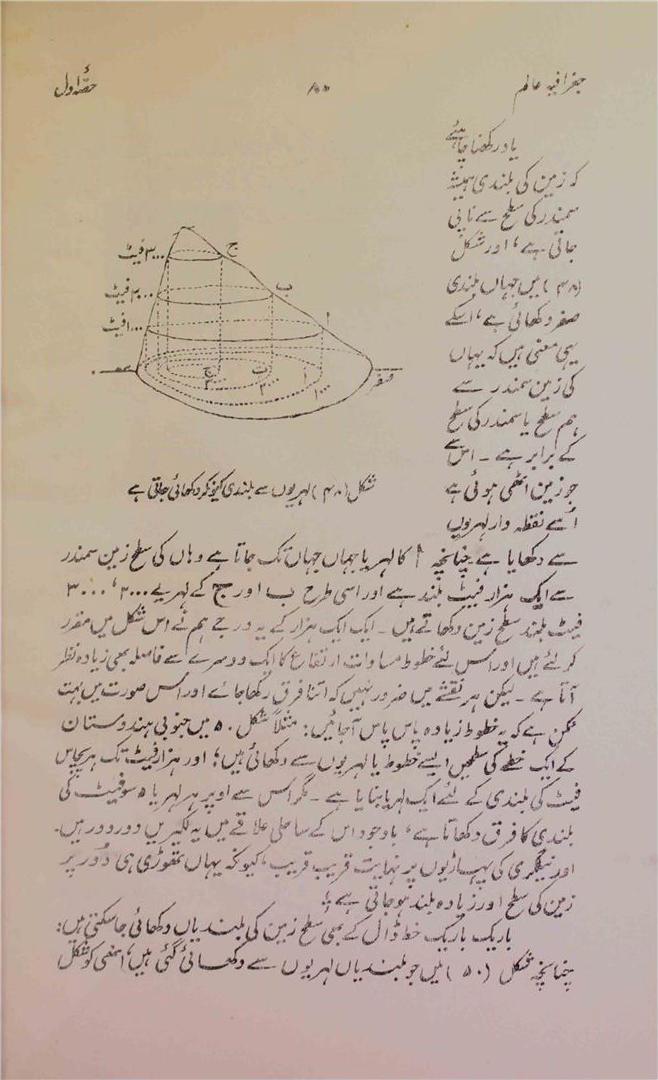 جغرافیہ عالم
حصۂ اول
یاد رکھنا چاہئے
کہ زمین کی بلندی ہمیشہ
سمندر کی سطح سے ناپی
جاتی ہے، اور شکل
(۴۸) میں جہاں بلندی
صفر دکھائی ہے، اسکے
یہی معنی ہیں کہ یہاں
کی زمین سمندر سے
ہم سطح یا سمندر کی سطح
کے برابر ہے ۔ اس سے
جو زمین اٹھی ہوئی ہے
اُسے نقطہ وار لہریوں
۳۰۰۰ فیٹ
ج
۲۰۰۰ فیٹ
ب
۱۰۰۰ فیٹ
ا
صفر
ج
ب
ا
شکل (۴۸) لہریوں سے بلندی کیونکر دکھائی جاتی ہے
سے دکھایا ہے چنانچہ ا کا لہریا جہاں جہاں تک جاتا ہے وہاں کی سطح زمین سمندر
سے ایک ہزار فیٹ بلند ہے اور اسی طرح ب اور ج کے لہریے ۲۰۰۰، ۳۰۰۰
فیٹ بلند سطح زمین دکھاتے ہیں ۔ ایک ایک ہزار کے یہ درجے ہم نے اس شکل میں مقرر
کر لئے ہیں اور اس لئے خطوط مساوات ارتفاع کا ایک دوسرے سے فاصلہ بھی زیادہ نظر
آتا ہے ۔ لیکن ہر نقشے میں ضرور نہیں کہ اتنا فرق رکھا جائے اور اس صورت میں بہت
ممکن ہے کہ یہ خطوط زیادہ پاس پاس آجائیں: مثلاً شکل ۵۰ میں جنوبی ہندوستان
کے ایک خطے کی سطحیں ایسے خطوط یا لہریوں سے دکھائی ہیں؛ اور ہزار فیٹ تک ہر پچاس
فیٹ کی بلندی کے لئے ایک لہریا بنایا ہے ۔ مگر اس سے اوپر ہر لہریا ۵ سو فیٹ کی
بلندی کا فرق دکھاتا ہے، باوجود اس کے ساحلی علاقے میں یہ لکیریں دور دور ہیں۔
اور نیلگری کی پہاڑیوں پر نہایت قریب قریب، کیونکہ یہاں تھوڑی ہی دور پر
زمین کی سطح اور زیادہ بلند ہو جاتی ہے
باریک باریک خط ڈال کے بھی سطح زمین کی بلندیاں دکھائی جا سکتی ہیں:
چنانچہ شکل (۵۰) میں جو بلندیاں لہریوں سے دکھائی گئی ہیں، انہی کو شکل